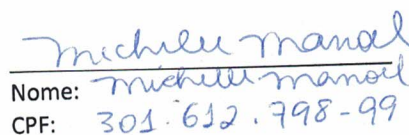 Michelle Manoel
Nome: Michelle Manoel
CPF: 301.612.798-99